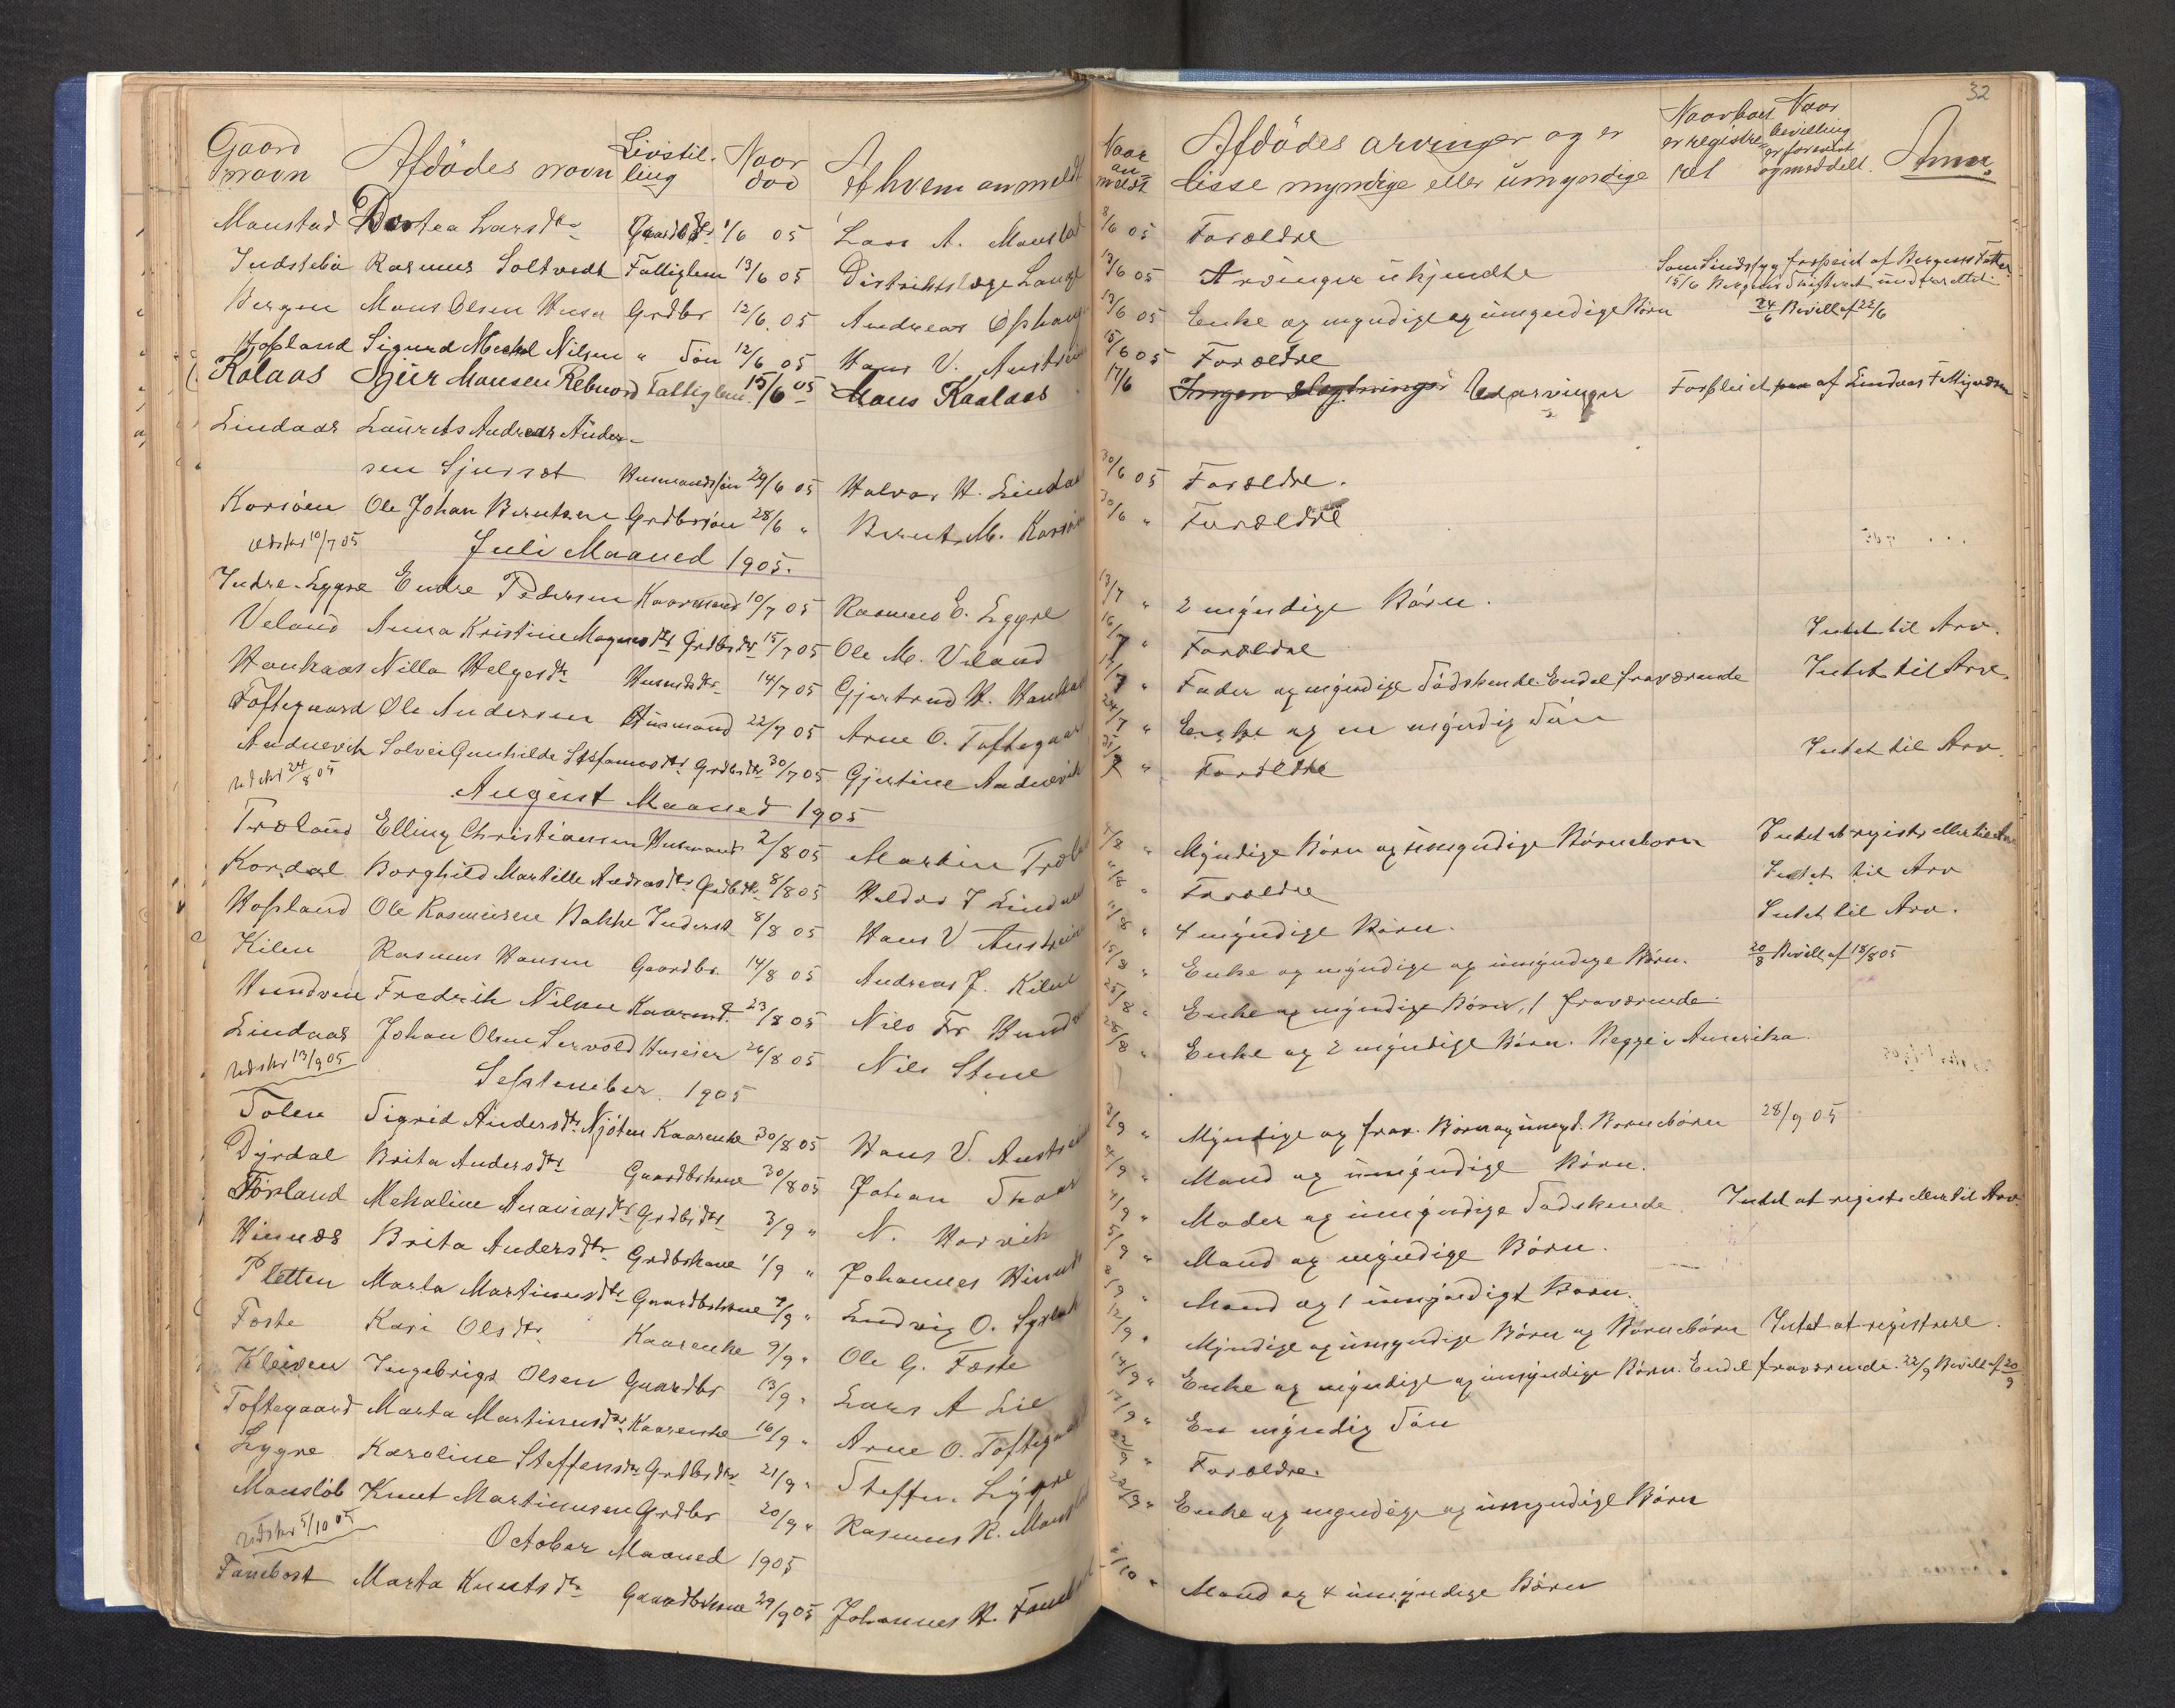 32
Gaard navn Afdödes navn Livstilling Naar död Af hvem anmeldt Naar anmeldt Afdödes arvinger og er disse myndige eller umyndige Naar boet er registreret Naar bevilling er forevist og meddelt Anm.
Monstad Dortea Larsdtr Gaardbdtr 1/6 05 Lars A. Monstad 8/6 05 Forældre
Indstebö Rasmus Soltvedt Fattiglem 13/6 05 Distriktslæge Lange 13/6 05 Arvinger ukjendte Som Sindssyg forpleiet af Bergens Fatt
15/6 Bergens Skifteret underrettet
Bergen Mons Olsen Husa Grdbr 12/6 05 Andreas Ophaug 13/6 05 Enke og myndige og umyndige Börn 24/6 Bevill af 22/6
Hopland Sigurd Mechal Nilsen " Sön 12/6 05 Hans V. Austrein 15/6 05 Forældre
Kolaas Sjur Monsen Rebnord Fattiglem 15/6 05 Mons Kaalaas 17/6 Ingen Slægtninger Udarvinger Forpleiet af Lindaas Fattigvæsen
Lindaas Laurits Andreas Ander-
sen Sjursæt Husmandssön 29/6 05 Halvor H. Lindaas 30/6 05 Forældre.
Korsöen Ole Johan Berntsen Grdbrsön 28/6 " Bernt M. Korsöen 30/6 " Forældre
Udskr 10/7 05 Juli Maaned 1905.
Indre-Lygre Endre Pedersen Kaarmand 10/7 05 Rasmus E. Lygre 13/7 " 2 myndige Börn.
Veland Anna Kristine Magnusdtr Grdbrdtr 15/7 05 Ole M. Veland 16/7 " Forældre Intet til Arv.
Haukaas Nilla Helgesdtr Husmdsdtr 14/7 05 Gjertrud H. Haukaas 17/7 " Fader og myndige Södskende. Endel fraværende Intet til Arv.
Toftegaard Ole Andersen Husmand 22/7 05 Arne O. Toftegaard 24/7 " Enke og en myndig Sön
Andnevik Solvei Gunhilde Stefanusdtr Grdbrdtr 30/7 05 Gjertine Andnevik 31/7 " Forældre Intet til Arv.
Udskr 24/8 05 August Maaned 1905
Træland Elling Christiansen Husmand 2/8 05 Martin Træland 4/8 " Myndige Börn og umyndige Börnebörn Intet at registr. eller til Arv
Kordal Borghild Martille Andreasdtr Grdbdtr 8/8 05 Haldor J Lindaas " Forældre Intet til Arv
Hopland Ole Rasmusen Bakke Inderst 8/8 05 Hans V Austrein 11/8 " 4 myndige Börn. Intet til Arv.
Kilen Rasmus Hansen Gaardbr. 14/8 05 Andreas J. Kilen 15/8 " Enke og myndige og umyndige Börn. 20/8 Bevill af 18/8 05
Hundven Fredrik Nilsen Kaarmd. 23/8 05 Nils Fr Hundven 25/8 " Enke og myndige Börn, 1 fraværende
Lindaas Johan Olsen Servold Huseier 26/8 05 Nils Stene 28/8 " Enke og 2 myndige Börn. Begge i Amerika
Udskr 13/9 05 September 1905
Solen Sigrid Andersdtr Njöten Kaarenke 30/8 05 Hans V. Austrein 3/9 " Myndige og frav. Börn og umynd. Börnebörn 28/9 05
Dyrdal Brita Andersdtr Gaardbrkone 30/8 05 Johan 4/9 " Mand og umyndige Börn.
Försland Mekaline Ananiasdtr Grdbrdtr 3/9 " N. Horvik 4/9 " Moder og umyndige Södskende. Intet at registr. eller til Arv.
Himnæs Brita Andersdtr Grdbrkone 1/9 " Johannes Himnæs 5/9 " Mand og myndige Börn.
Pletten Marta Martinusdtr Gaardbrkone 7/9 " Ludvig O. 8/9 " Mand og 1 umyndigt Barn.
Foste Kari Olsdtr Kaarenke 9/9 " Ole G. Foste 12/9 " Myndige og umyndige Börn og Börnebörn Intet at registrere.
Kleiven Ingebrigt Olsen Gaardbr 13/9 " Lars A Lie 14/9 " Enke og myndige og umyndige Börn. Endel fraværende. 22/9 Bevill af 20/9
Toftegaard Marta Martinusdtr Kaarenke 16/9 " Arne O. Toftegaard 17/9 " En myndig Sön
Lygre Karoline Steffensdtr Grdbrdtr 21/9 " Steffen Lygre 22/9 " Forældre.
Monslöb Knut Martinusen Grdbr 20/9 " Rasmus R. Monslöb " Enke og myndige og umyndige Börn
Udskr 5/10 05 October Maaned 1905
Fanebost Marta Knutsdtr Gaardbrkone 29/9 05 Johannes H. Fanebost /10 " Mand og 4 umyndige Börn